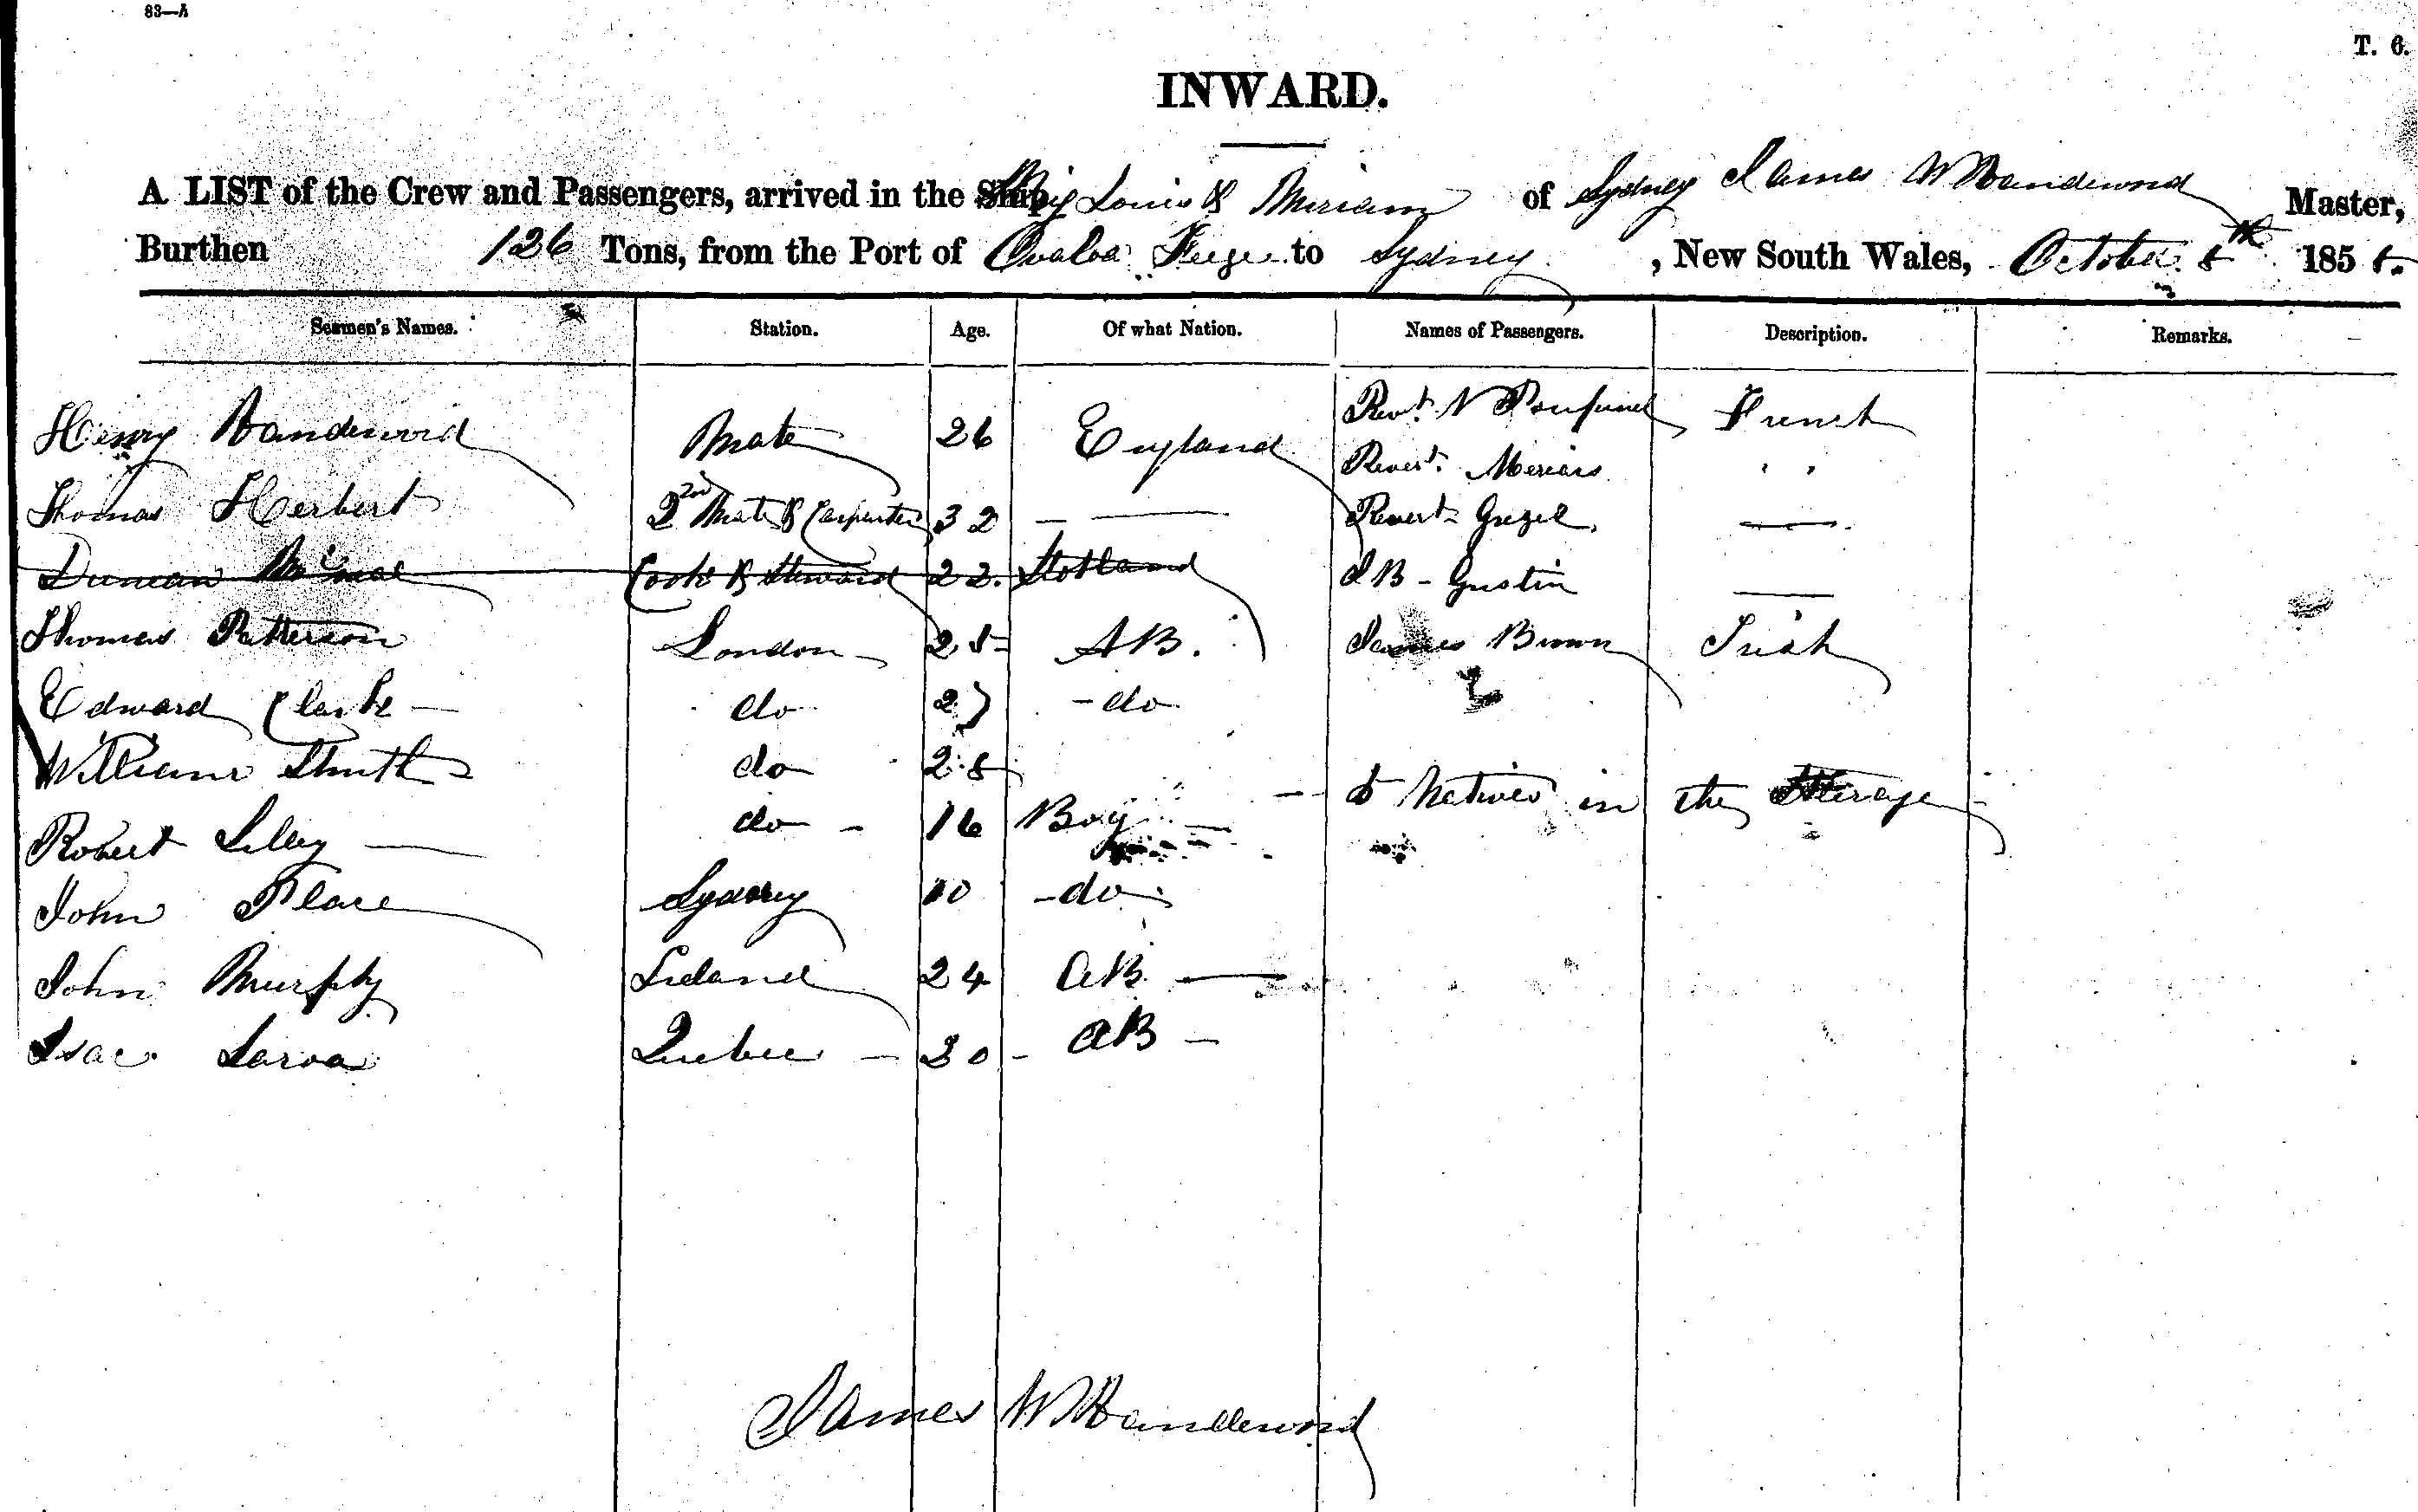 83—A
T. 6.
INWARD.
A LIST of the Crew and Passengers, arrived in the Ship Brig Louis & Miriam of Sydney James W Vandervord Master,
Burthen 126 Tons, from the Port of Ovaloa to Sydney, New South Wales, October 5th 1855.
Seamen's Names. Station. Age. Of what Nation. Names of Passengers. Description. Remarks.
Henry Vandervord Mate 26 England Revt. French
Revert. " "
Thomas Herbert 2nd Mate & Carpenter 32 — — Revert — 
Duncan Cook & Steward 22. Scotland J B - Gustin —
Thomas Patterson London 25 AB. James Brown Irish
Edward Clarke — do 27 - do
William Smith do 25
— 5 Natives in the Steerage
Robert Lilley — do - 16 Boy —
John Place Sydney 10 - do
John Murphy Ireland 24 AB —
Isac Larva Quebec — 30 - AB —
James W Vandervord